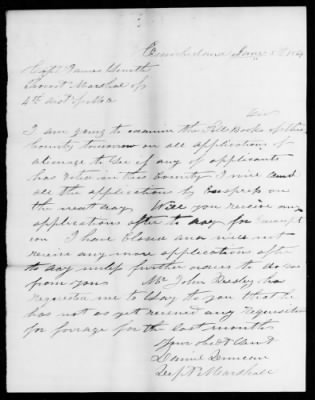 Cumberland Jany 5th 1864
Capt James Smith
Provost Marshal of
4th Dist of Md
Sir
I am going to examine the Poll Books of this
County tomorrow on all applications of
alienage to see if any of applicants
has voted in this County I will send
all the applications by Express on
the next day Will you receive any
applications after to day for Exempt
ion I have closed and will not
receive any more applications after
to day until further orders to do so
from you Mr John Beasley has
requested me to say to you that he
has not as yet received any requisition
for forage for the last month
Your obedt Servt
Daniel Duncan
Dept P Marshal